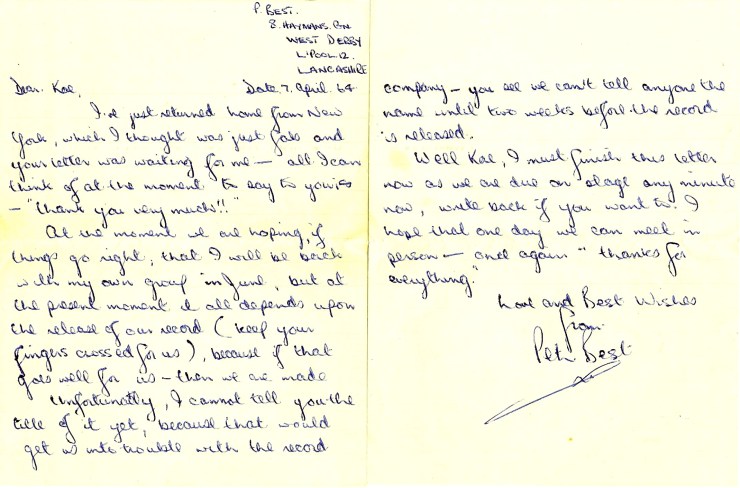 P. BEST.
8. HAYMANS. GN
WEST DERBY
L'POOL 12.
LANCASHIRE
Dear. Kae, Date 7. April. 64
I've just returned home from New
York, which I thought was just fab and
your letter was waiting for me — all I can
think of at the moment to say to you is
— "thank you very much!!"
At the moment we are hoping, if
things go right, that I will be back
with my own group in June, but at
the present moment it all depends upon
the release of our record (keep your
fingers crossed for us), because if that
goes well for us — then we are made
Unfortunatly, I cannot tell you the
title of it yet, because that would
get us into trouble with the record
company — you see we can't tell anyone the
name until two weeks before the record
is released.
Well Kae, I must finish this letter
now as we are due on stage any minute
now, write back if you want to. I
hope that one day we can meet in
person — and again " thanks for
everything."
Love and Best Wishes
from
Pete Best